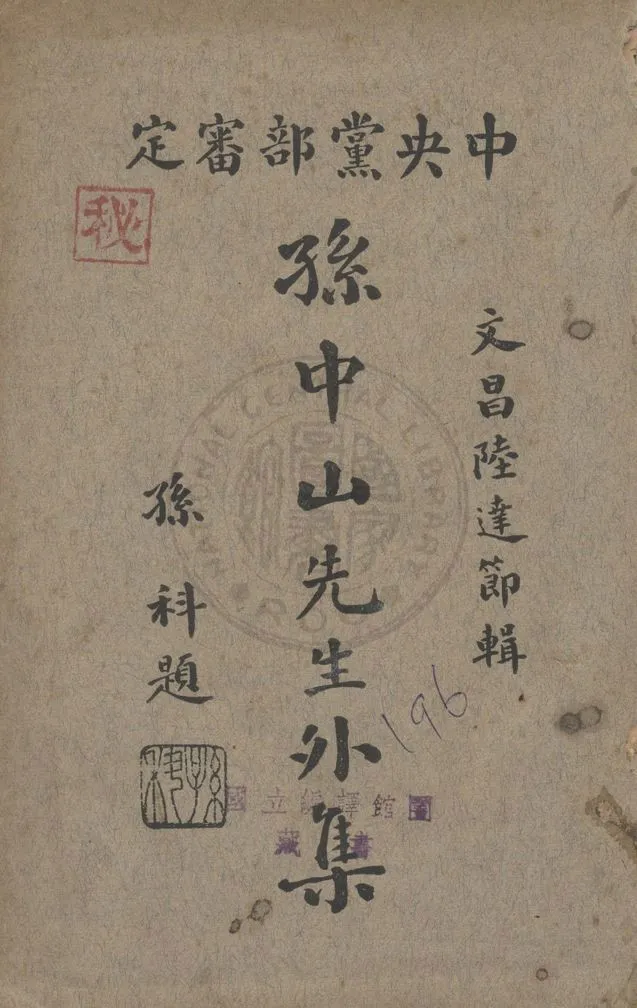 中央黨部審定
文昌陸達節輯
孫中山先生外集
孫科題
秘
孫科
196
國立編譯館圖
藏書
NATIONAL CENTRAL LIBRARY